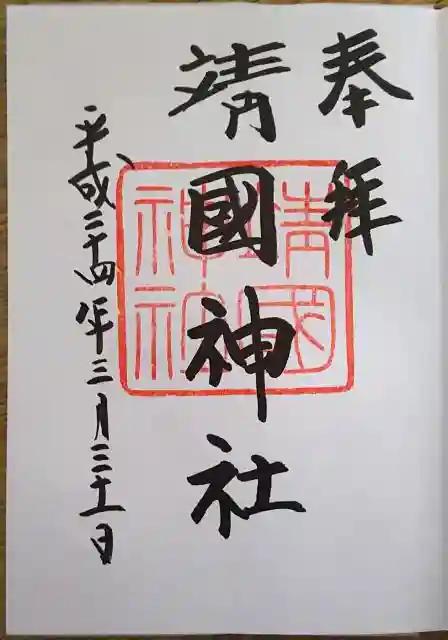 奉拝
靖國神社
平成二十四年三月三十一日
靖國神社